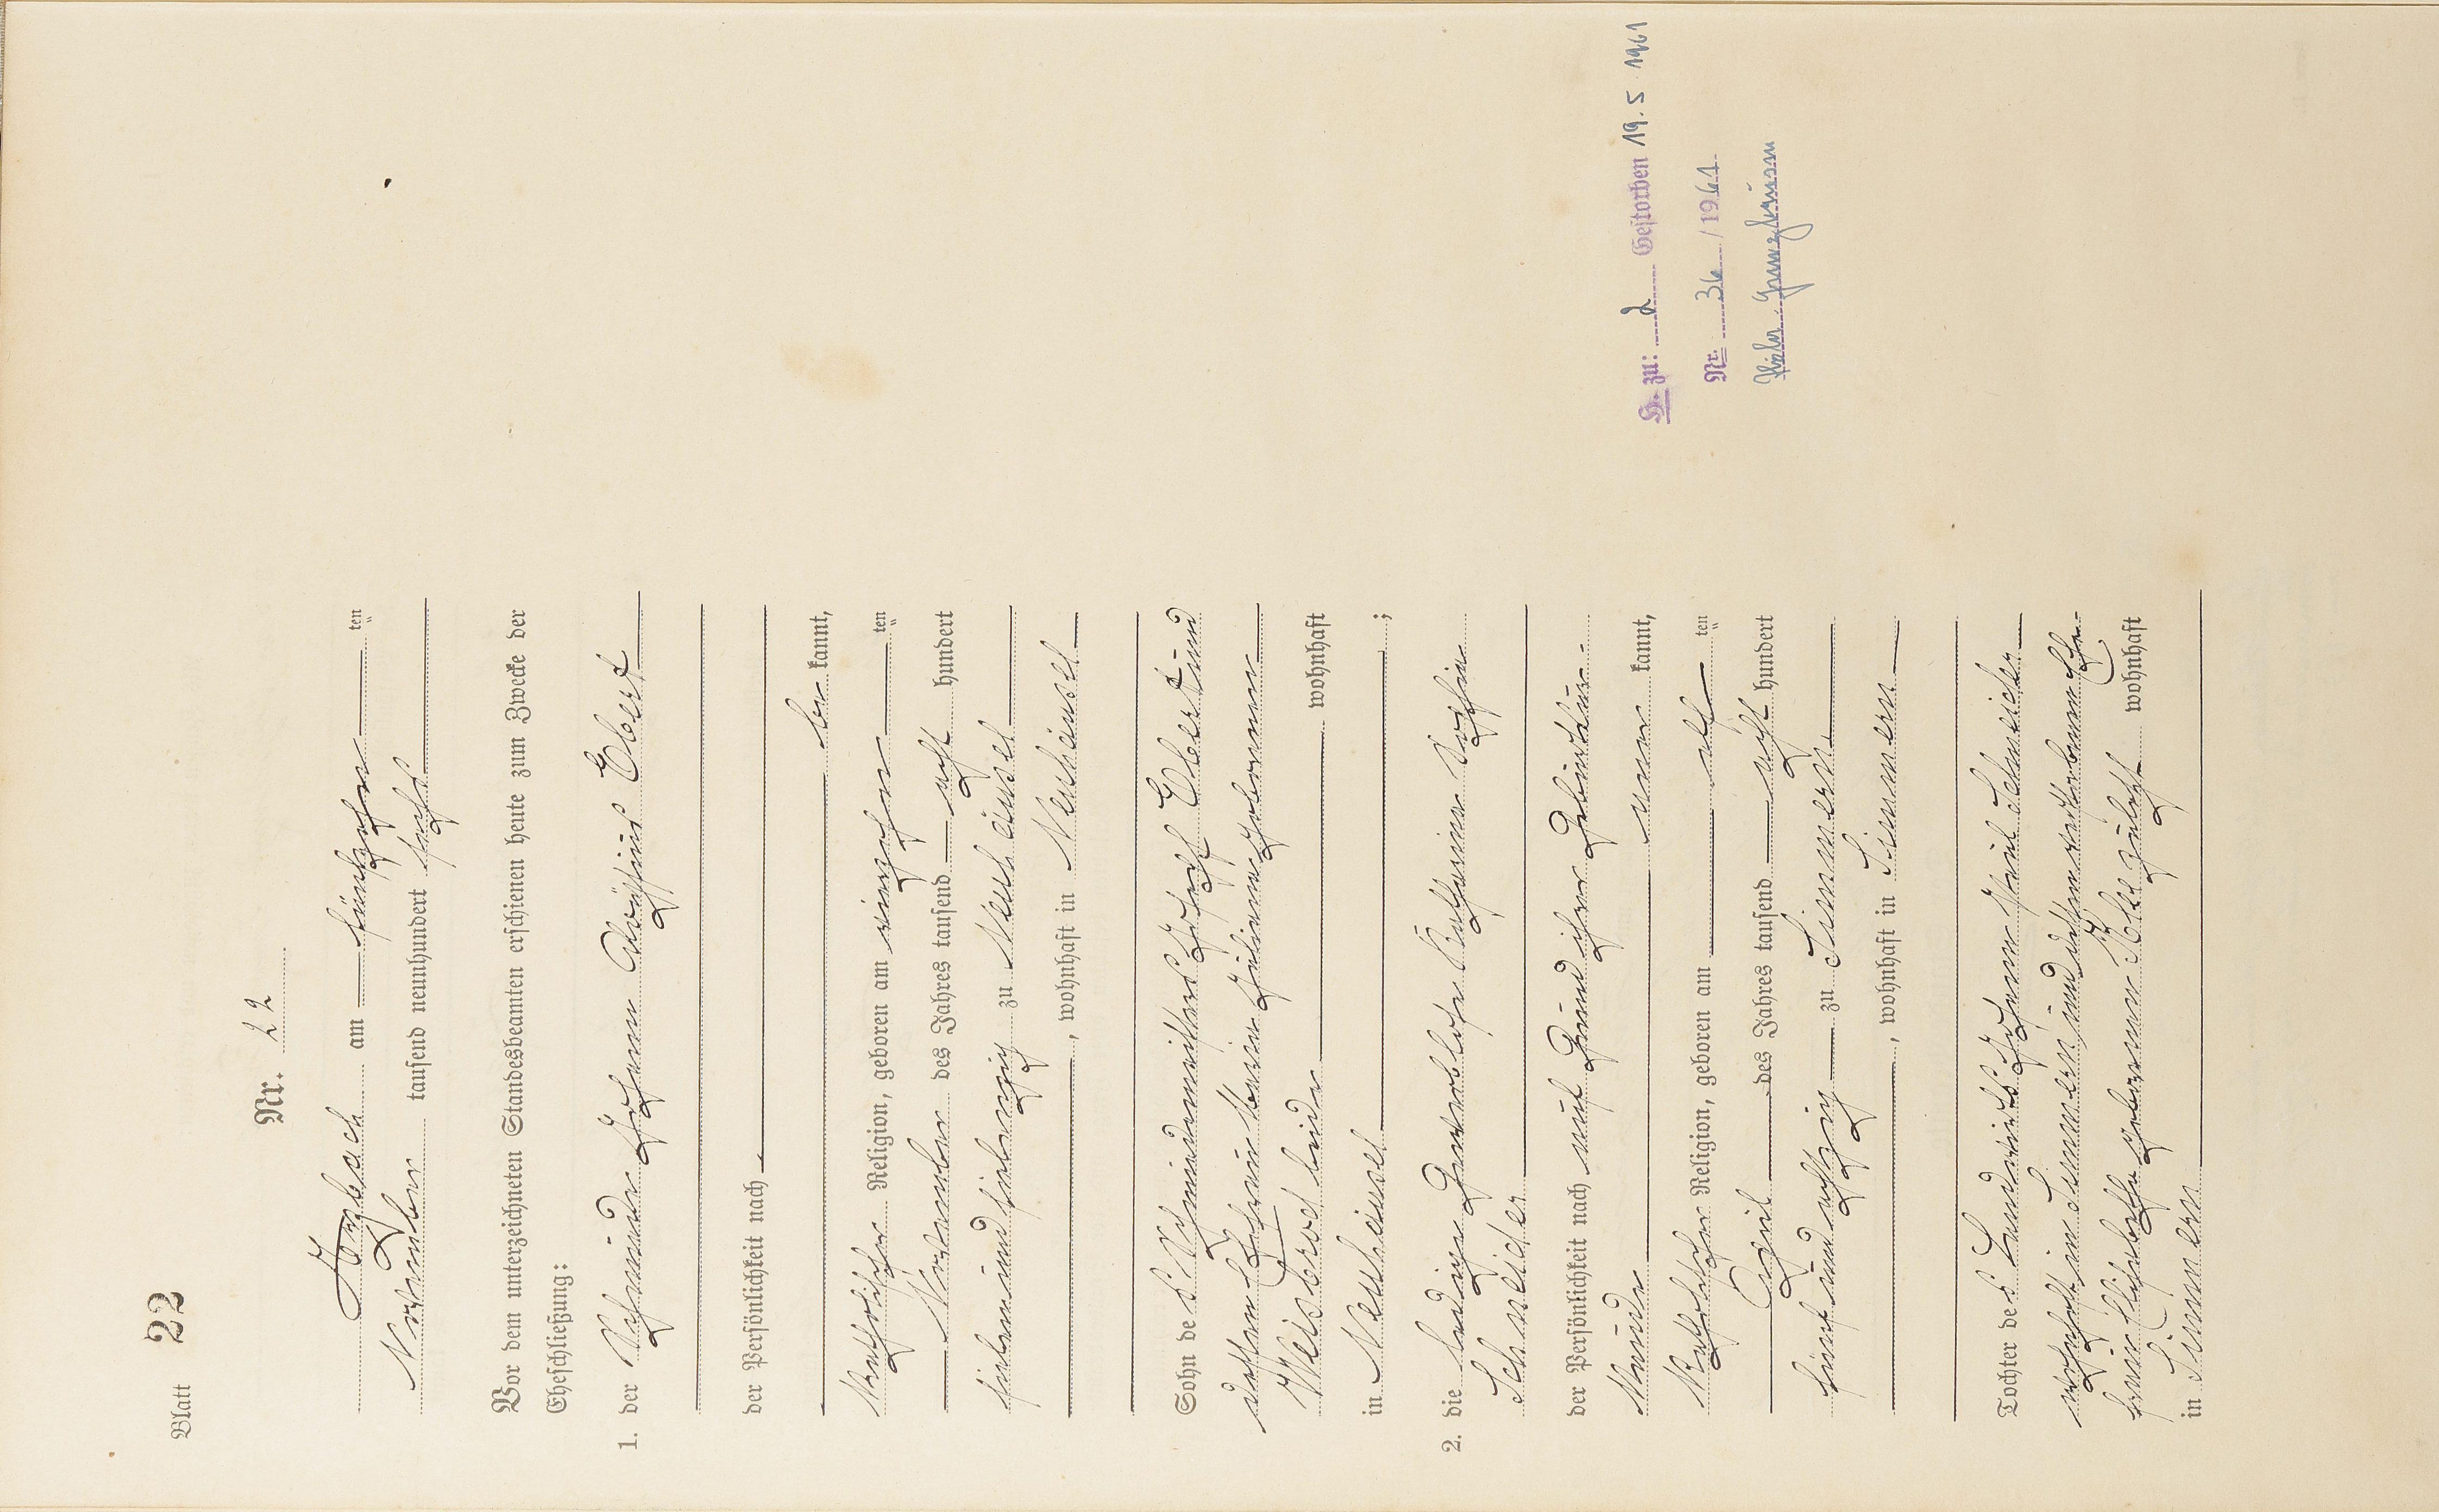 Blatt 22
Nr. 22
Horbach am fünfzehn ten
November tausend neunhundert sechs
Vor dem unterzeichneten Standesbeamten erschienen heute zum Zwecke der
Eheschließung:
1. der Schmied Johann Ebert
der Persönlichkeit nach
be kannt,
katholischer Religion, geboren am vierzehn ten
November des Jahres tausend acht hundert
siebenundsiebenzig zu Neuhäusel
, wohnhaft in Neuhäusel
Sohn des Schmiedemeisters Joseph Ebert und
dessen Ehefrau Maria Juliana geborenen
Meisbrod beide wohnhaft
in Neuhäusel;
2. die ledige Gewerblose Katharina Sophia
Schneider
der Persönlichkeit nach auf Grund ihrer Geburtsur-
kunde aner kannt,
katholischer Religion, geboren am elf ten
April des Jahres tausend acht hundert
fünf und achtzig zu Simmern
, wohnhaft in Simmern
Tochter des Landwirts Johann Schneider
wohnhaft in Simmern und dessen verstorbenen Ehe-
frau Elisabetha geborenen zuletzt wohnhaft
in Simmern
H. zu: 2 Gestorben 19.5 1961
Nr. 36/1961